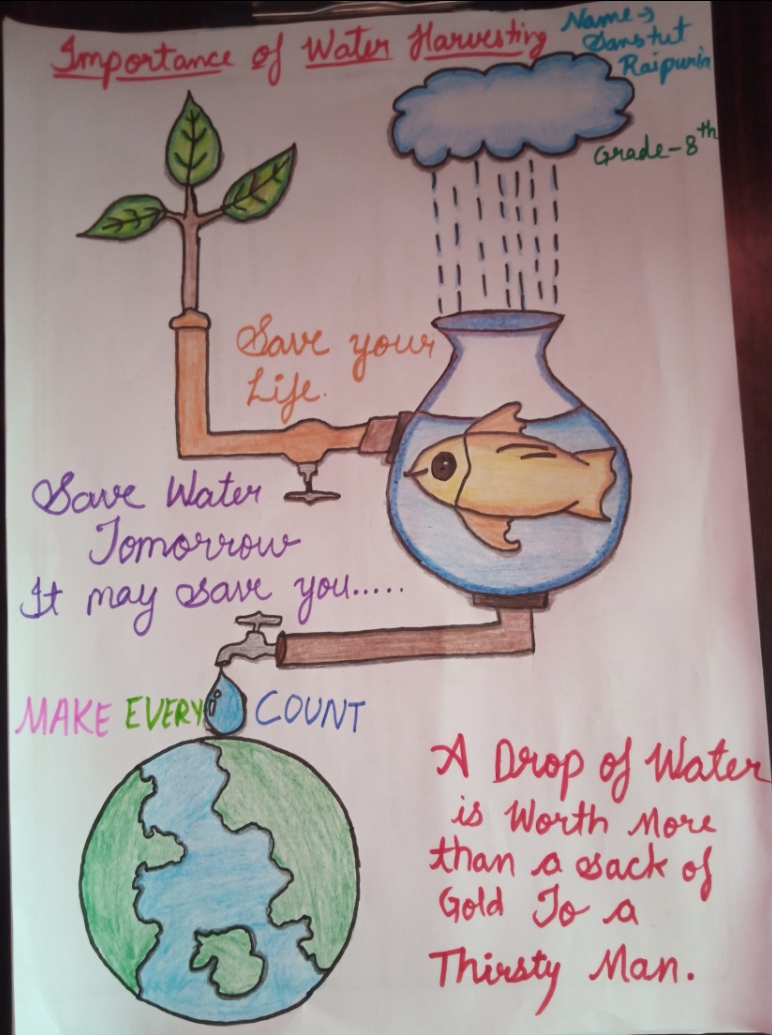 Importance of Water Harvesting
Name→
Sanstut
Raipuria
Grade-8th
Save your
Life.
Save Water
Tomorrow
It may save you.....
MAKE EVERY COUNT
A Drop of Water
is Worth More
than a sack of
Gold To a
Thirsty Man.